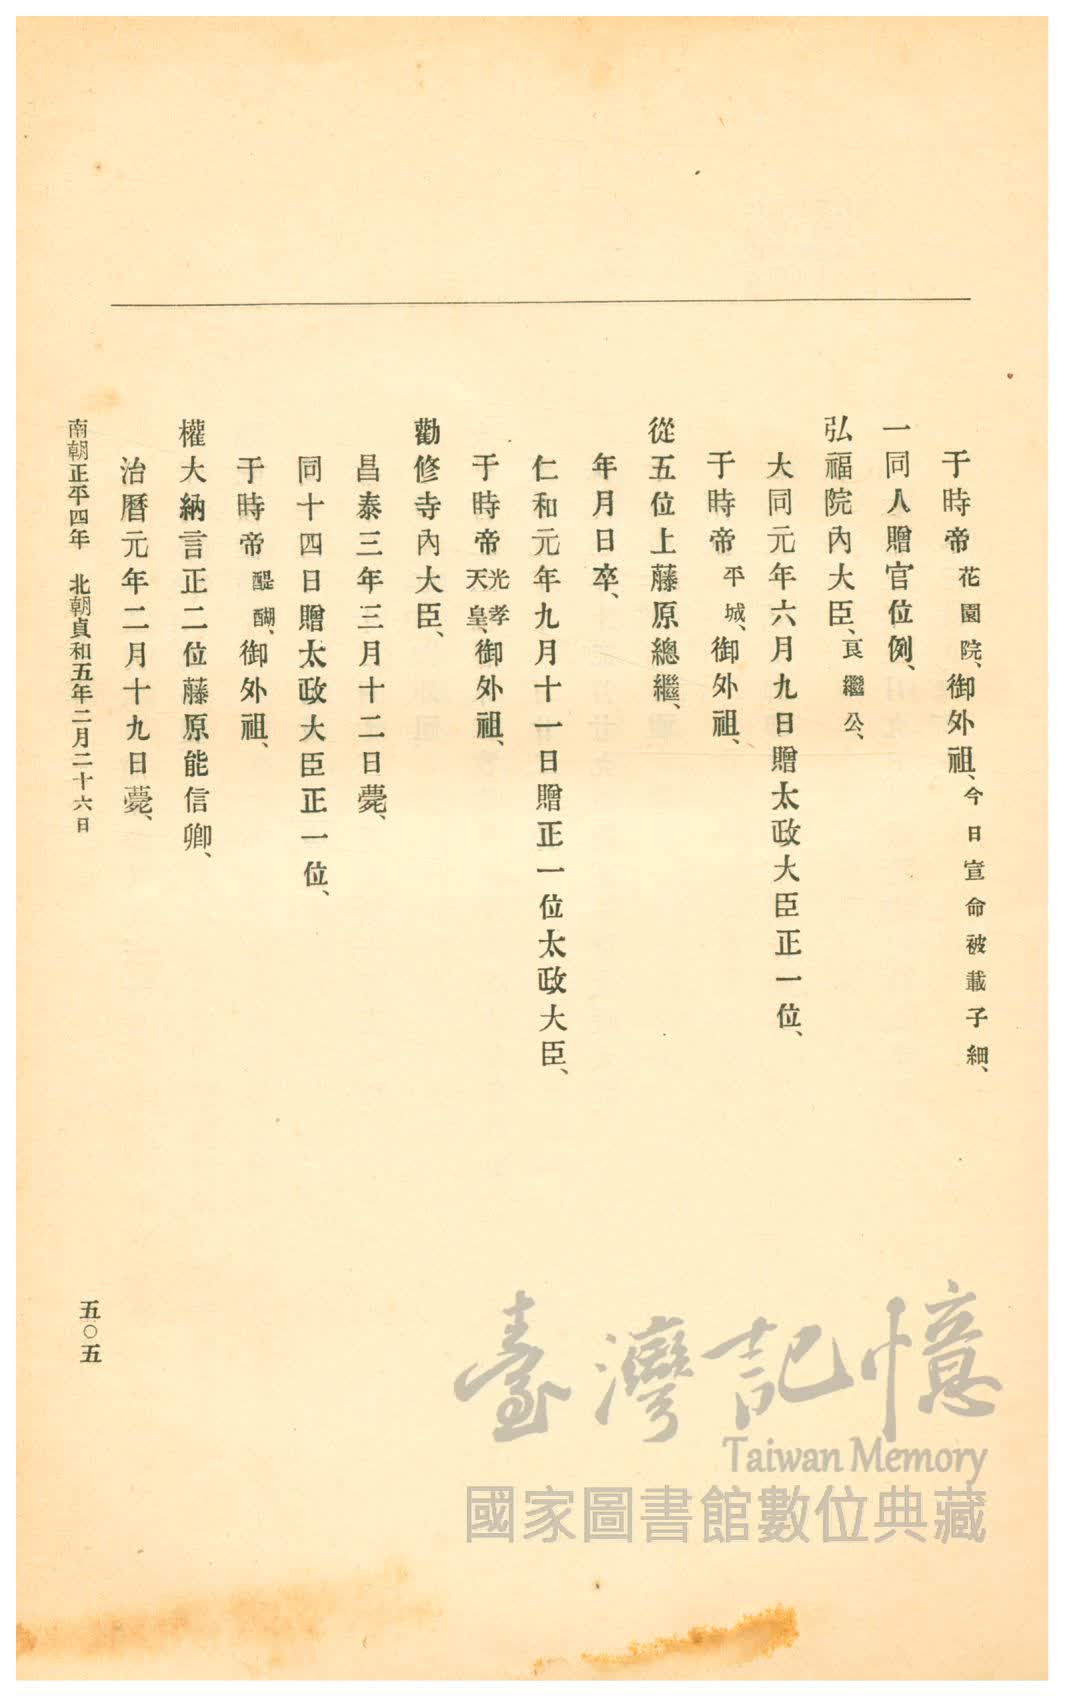 于時帝花園院、御外祖、今日宣命被載子細、
一同人贈官位例、
弘福院內大臣、良繼公、
大同元年六月九日贈太政大臣正一位、
于時帝平城、御外祖、
從五位上藤原總繼、
年月日卒、
仁和元年九月十一日贈正一位太政大臣、
于時帝光孝天皇、御外祖、
勸修寺內大臣、
昌泰三年三月十二日薨、
同十四日贈太政大臣正一位、
于時帝醍醐、御外祖、
權大納言正二位藤原能信卿、
治曆元年二月十九日薨、
南朝正平四年 北朝貞和五年二月二十六日
五〇五
臺灣記憶
Taiwan Memory
國家圖書館數位典藏